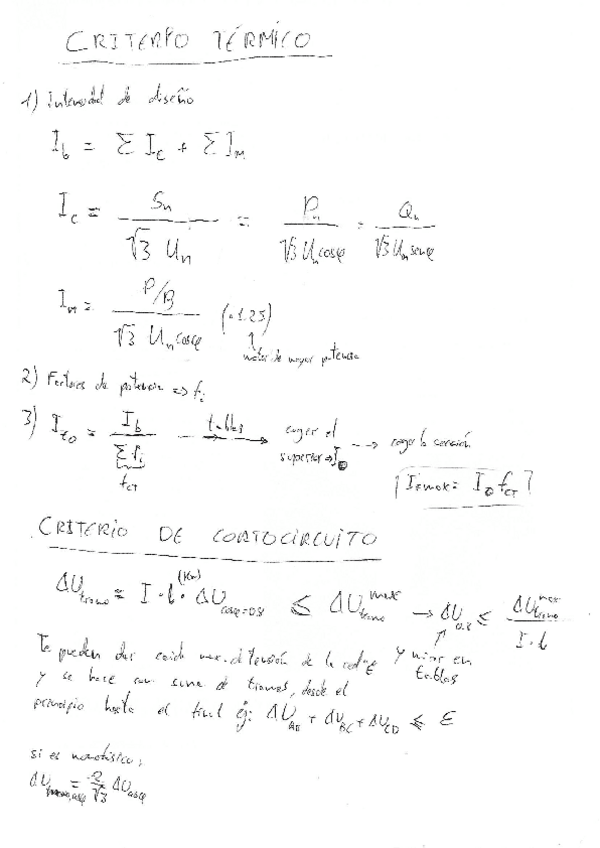 CRITERIO TÉRMICO
1) Intensidad de diseño
I_b = Σ I_c + Σ I_m
I_c = S_n / (√3 U_n) = P_n / (√3 U_n cosφ) = Q_n / (√3 U_n senφ)
I_m = P/η / (√3 U_n cosφ) (·1.25)
↑
motor de mayor potencia
2) Factores de potencia => f_i
3) I_to = I_b / Σ f_i → tablas → coger el superior → I_o --→ coger la sección
f_CT
I_max = I_o f_CT
CRITERIO DE CORTOCIRCUITO
ΔU_tramo = I · L (km) · ΔU_cosφ=0.8 ≤ ΔU_tramo^max → ΔU_0.8 ≤ ΔU_tramo^max / I·L
Te pueden dar caida max. de tensión de la red = ε y mirar en tablas
y se hace como suma de tramos, desde el
principio hasta el final ej: ΔU_AB + ΔU_BC + ΔU_CD ≤ ε
si es monofásico,
ΔU = 2/√3 ΔU_cosφ